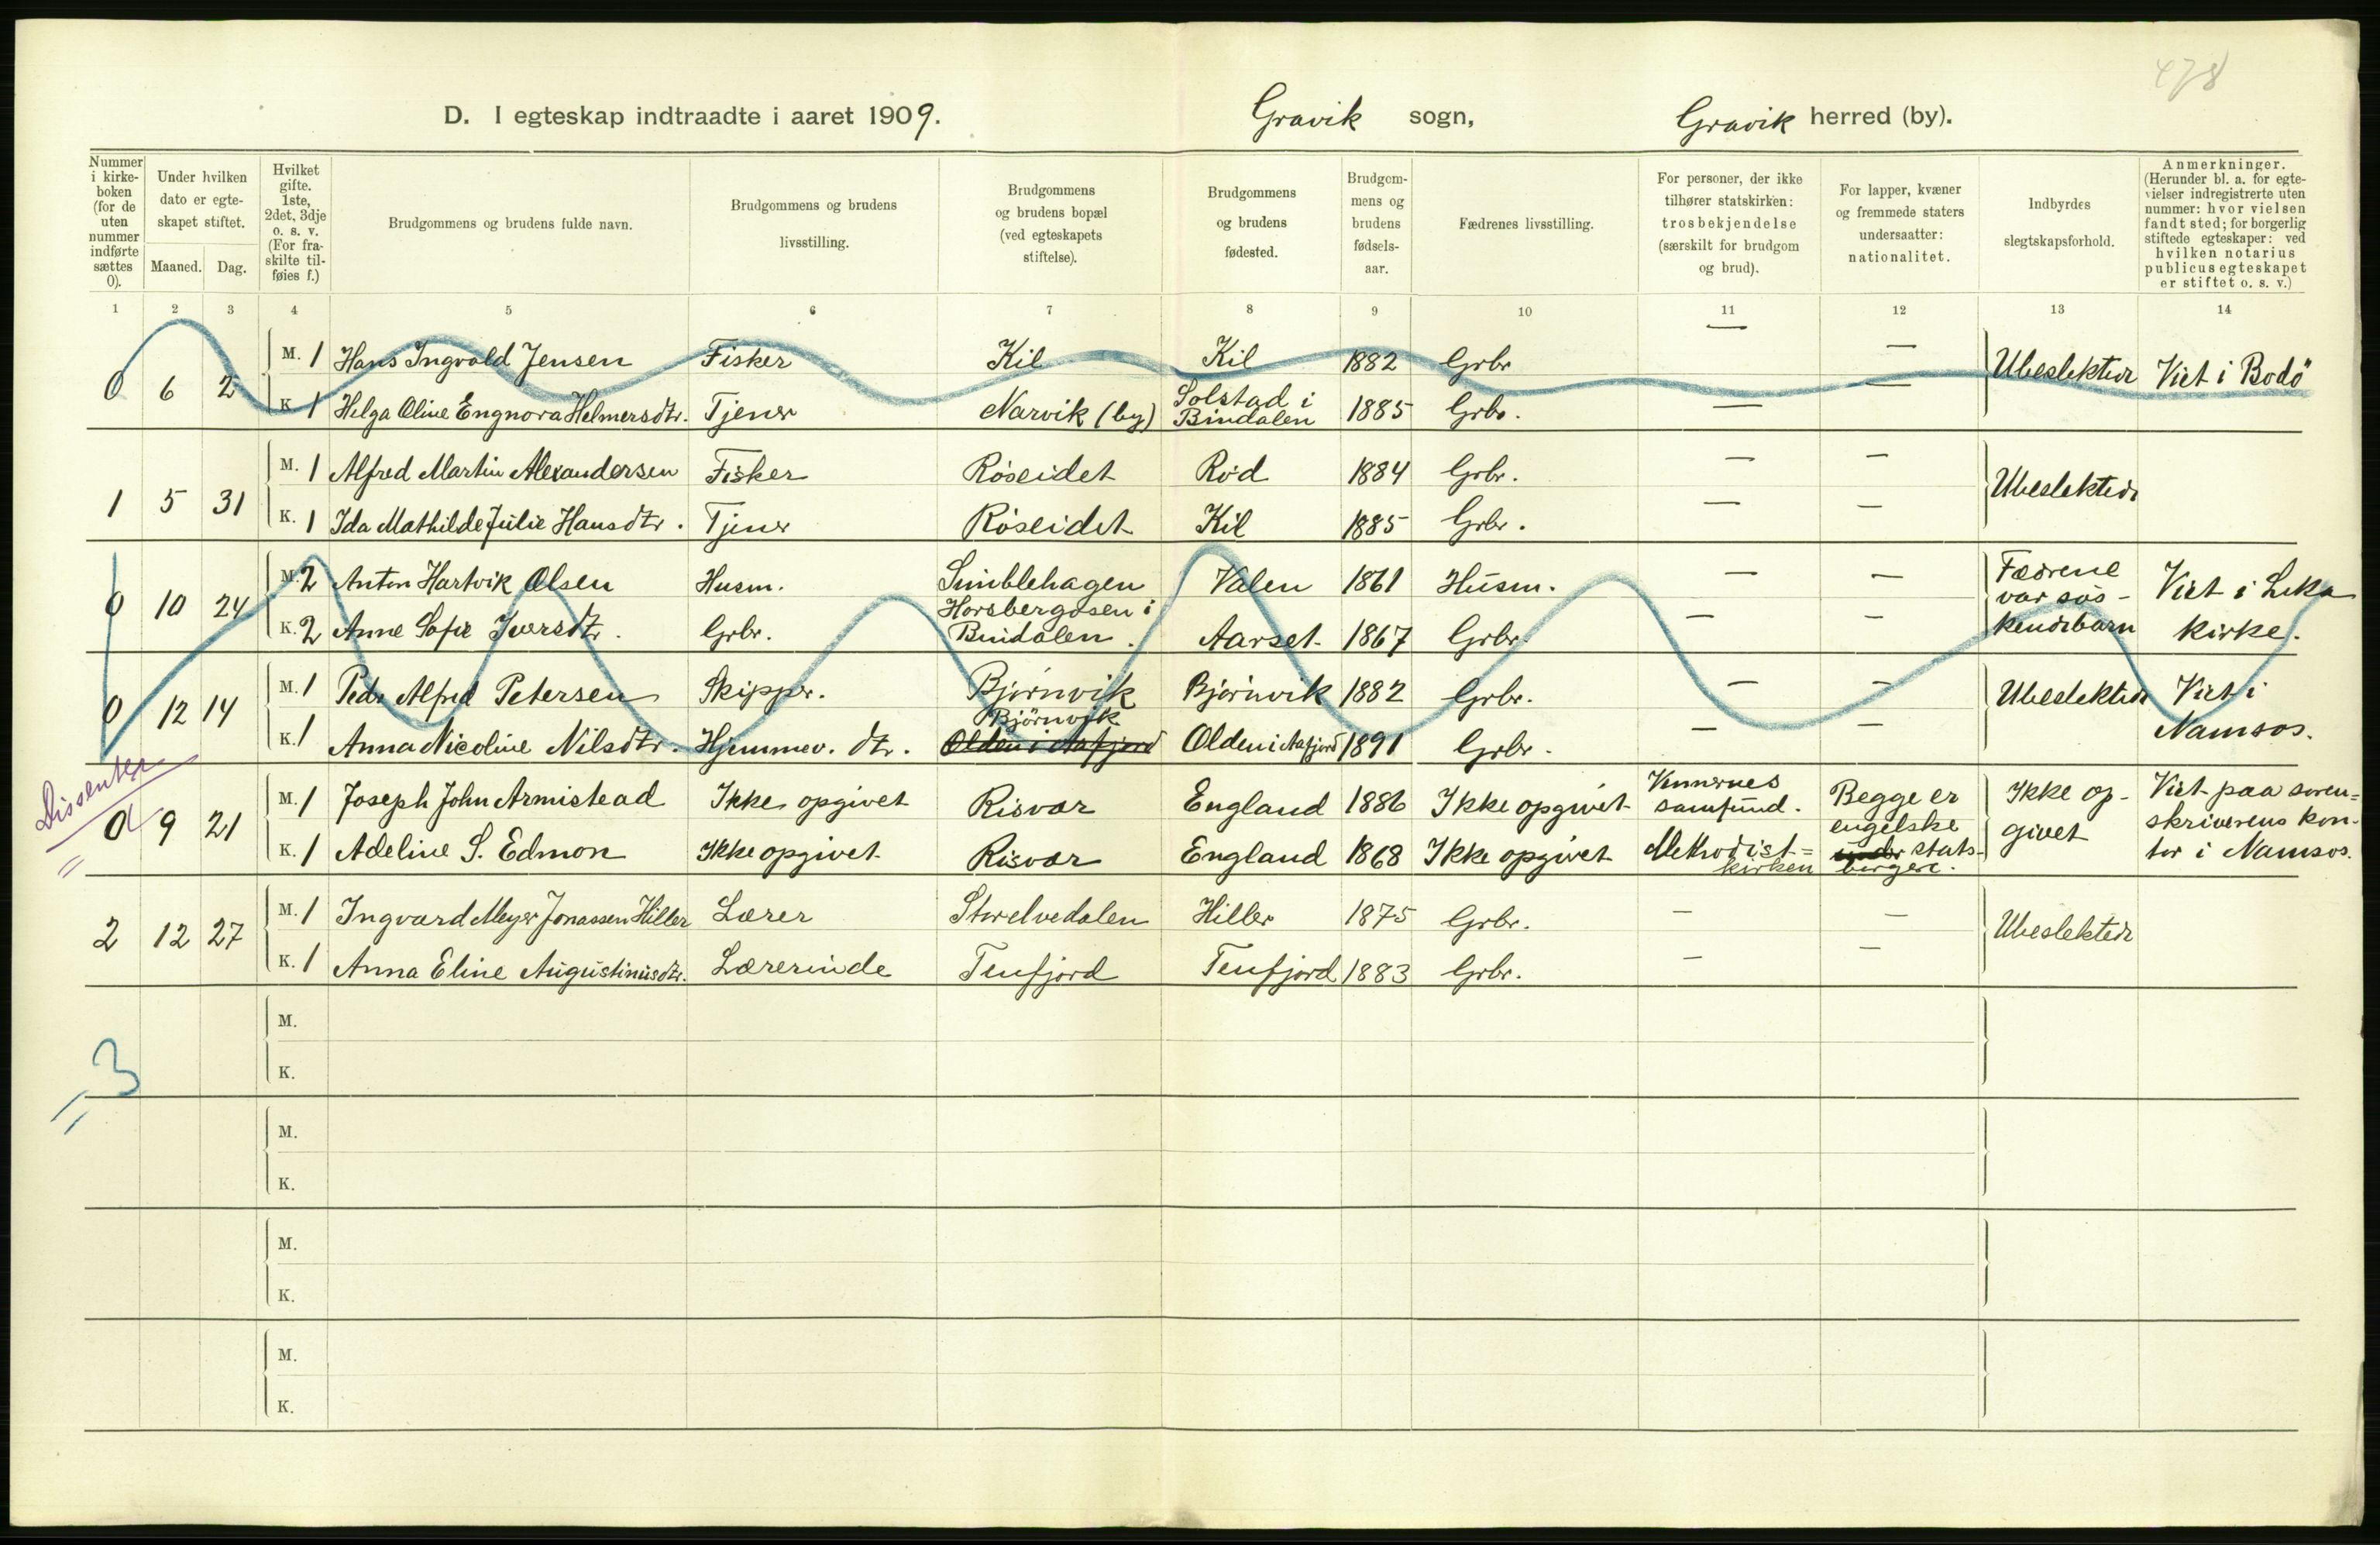 478
D. I egteskap indtraadte i aaret 1909. Gravik sogn, Gravik herred (by).
Nummer i kirke-boken (for de uten nummer indførte sættes 0).
Under hvilken dato er egte-skapet stiftet.
Maaned. Dag.
Hvilket gifte. 1ste, 2det, 3dje o. s. v. (For fra-skilte til-føies f.)
Brudgommens og brudens fulde navn.
Brudgommens og brudens livsstilling.
Brudgommens og brudens bopæl (ved egteskapets stiftelse).
Brudgommens og brudens fødested.
Brudgom-mens og brudens fødsels-aar.
Fædrenes livsstilling.
For personer, der ikke tilhører statskirken: trosbekjendelse (særskilt for brudgom og brud).
For lapper, kvæner og fremmede staters undersaatter: nationalitet.
Indbyrdes slegtskapsforhold.
Anmerkninger. (Herunder bl. a. for egte-vielser indregistrerte uten nummer: hvor vielsen fandt sted; for borgerlig stiftede egteskaper: ved hvilken notarius publicus egteskapet er stiftet o. s. v.)
1 2 3 4 5 6 7 8 9 10 11 12 13 14
0 6 2
M. 1 Hans Ingvald Jensen Fisker Kil Kil 1882 Grbr — — Ubeslektede Viet i Bodö
K. 1 Helga Oline Engnora Helmersdtr. Tjener Narvik (by) Solstad i Bindalen 1885 Grbr. — —
1 5 31
M. 1 Alfred Martin Alexandersen Fisker Röseidet Röd 1884 Grbr. — — Ubeslektede
K. 1 Ida Mathilde Julie Hansdtr. Tjener Röseidet Kil 1885 Grbr. — —
0 10 24
M. 2 Anton Hartvik Olsen Husm. Simblehagen Valen 1861 Husm. — — Fædrene var sös-kendebarn Viet i Leka kirke.
K. 2 Anne Sofie Iversdtr. Grbr. Horsbergosen i Bindalen. Aarset 1867 Grbr. — —
0 12 14
M. 1 Peder Alfred Petersen Skipper. Björnvik Björnvik 1882 Grbr. — — Ubeslektede Viet i Namsos.
K. 1 Anna Nicoline Nilsdtr. Hjemmev. dtr. Björnvik Olden i Aafjord Olden i Aafjord 1891 Grbr. — —
Dissenter
0 9 21
M. 1 Joseph John Armistead Ikke opgivet Risvær England 1886 Ikke opgivet Vennernes samfund. Begge er engelske stats-borgere. Ikke op-givet Viet paa soren=skriverens kon-tor i Namsos.
K. 1 Adeline S. Edmon Ikke opgivet Risvær England 1868 Ikke opgivet Methodist=kirken
2 12 27
M. 1 Ingvard Meyer Jonassen Hiller Lærer Storelvedalen Hiller 1875 Grbr. — — Ubeslektede
K. 1 Anna Eline Augustinusdtr. Lærerinde Tenfjord Tenfjord 1883 Grbr. — —
M.
K.
3
M.
K.
M.
K.
M.
K.